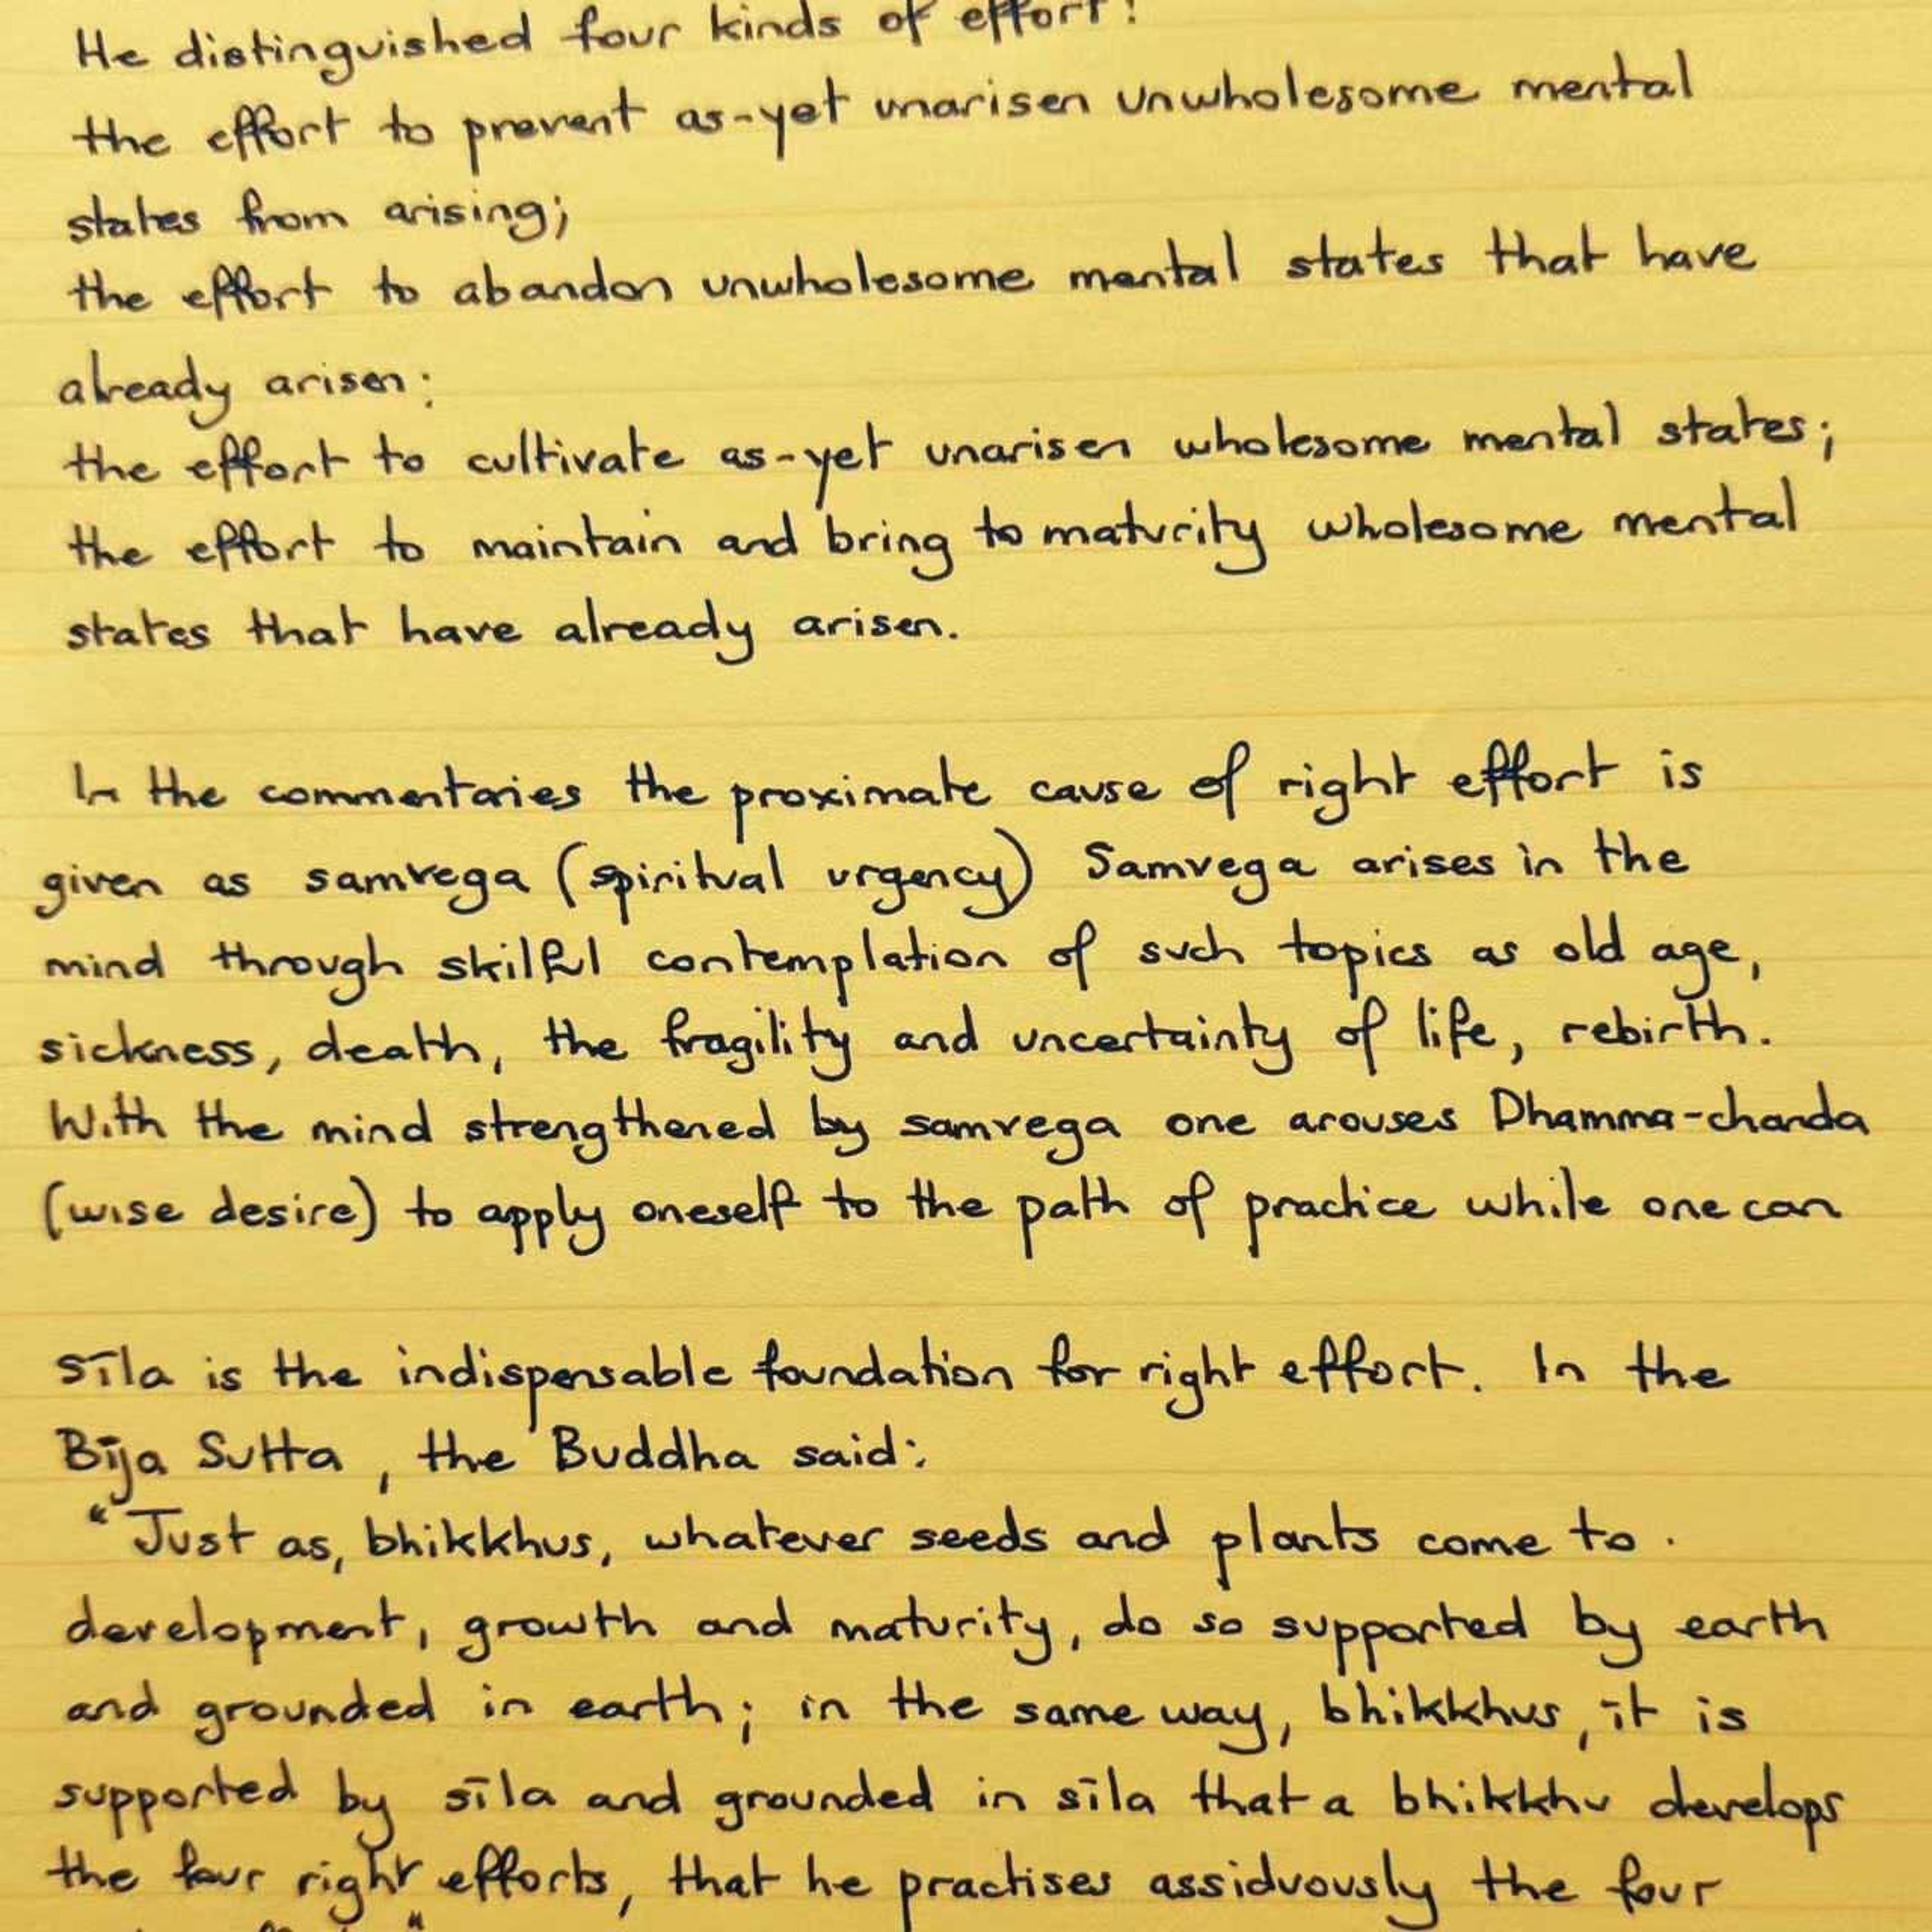 He distinguished four kinds of effort:
the effort to prevent as-yet unarisen unwholesome mental
states from arising;
the effort to abandon unwholesome mental states that have
already arisen;
the effort to cultivate as-yet unarisen wholesome mental states;
the effort to maintain and bring to maturity wholesome mental
states that have already arisen.
In the commentaries the proximate cause of right effort is
given as samvega (spiritual urgency) Samvega arises in the
mind through skilful contemplation of such topics as old age,
sickness, death, the fragility and uncertainty of life, rebirth.
With the mind strengthened by samvega one arouses Dhamma-chanda
(wise desire) to apply oneself to the path of practice while one can
sīla is the indispensable foundation for right effort. In the
Bīja Sutta, the Buddha said:
"Just as, bhikkhus, whatever seeds and plants come to
development, growth and maturity, do so supported by earth
and grounded in earth; in the same way, bhikkhus, it is
supported by sīla and grounded in sīla that a bhikkhu develops
the four right efforts, that he practises assiduously the four